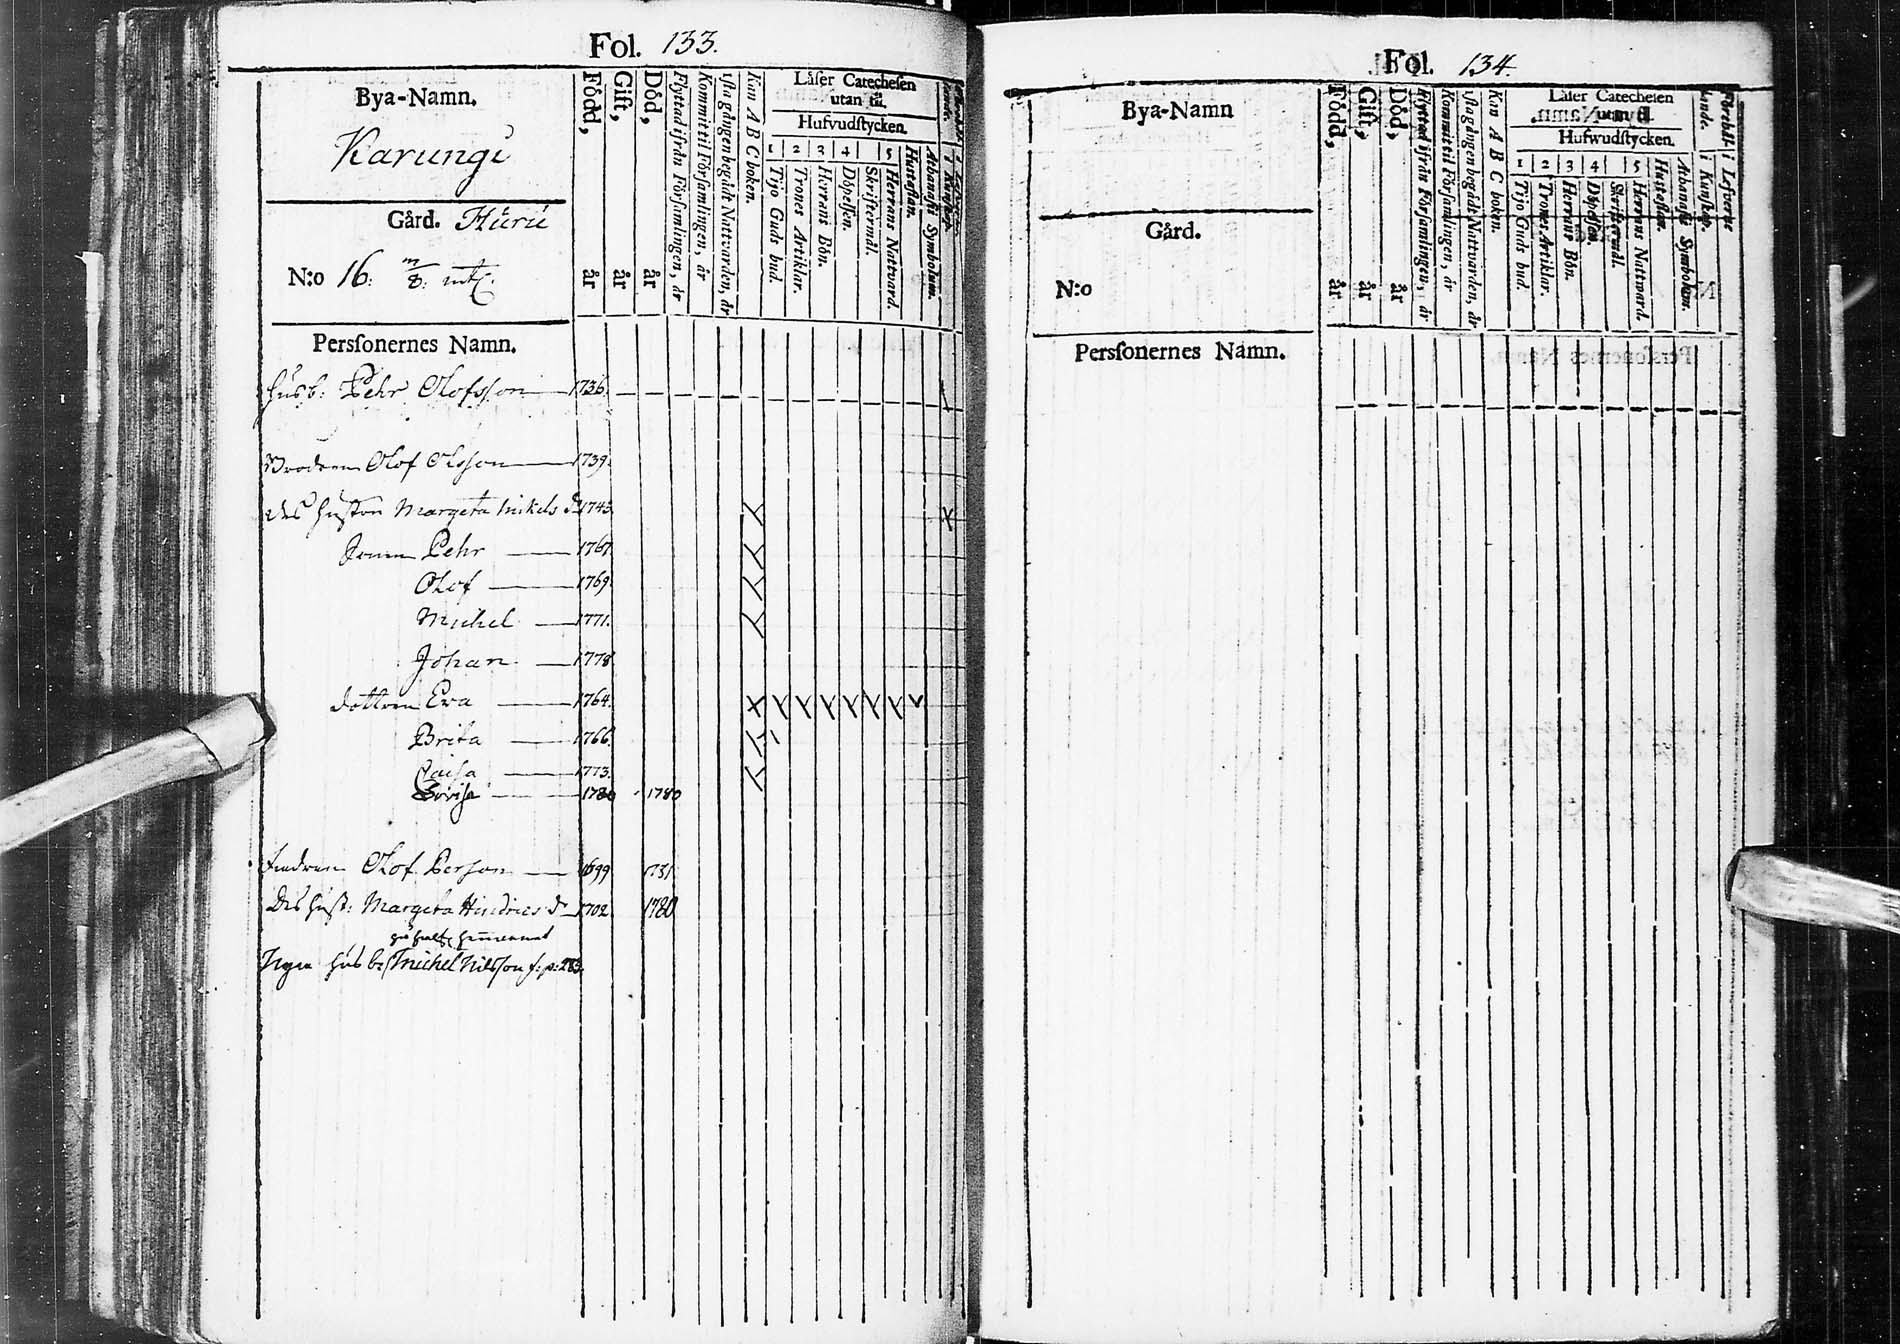 Fol. 133.
Bya-Namn.
Karungi
Gård. Huru
N:o 16.
Född, år
Gift, år
Död, år
Flyttad ifrån Församlingen, år
Kommit til Församlingen, år
1sta gången begådt Nattvarden, år
Kan A B C boken.
Läser Catechesen
utan til.
Hufvudstycken.
1 2 3 4 5
Tijo Guds bud.
Trones Artiklar.
Herrans Bön.
Döpelsen.
Skriftermål.
Herrans Nattvard.
Hustaflan.
Athanasii Symbolum.
Personernes Namn.
Husb: Pehr Olofsson 1736.
Brodren Olof Olsson 1739.
Des hustru Margeta Mikels d. 1743.
Sonen Pehr 1767.
Olof 1769.
Michel 1771.
Johan 1778.
dottren Eva 1764.
Brita 1766.
Caisa 1773.
1780 1780
Fadren Olof Person 1699 1731
Des hust: Margeta Hindrics d. 1702 1780
Nya husb: Michel Nilsson f: p: 283.
Fol. 134.
Bya-Namn
Gård.
N:o
Född, år
Gift, år
Död, år
Flyttad ifrån Församlingen, år
Kommit til Församlingen, år
1sta gången begådt Nattvarden, år
Kan A B C boken.
Läser Catechesen
utan til.
Hufwudstycken.
1 2 3 4 5
Tijo Guds bud.
Trones Artiklar.
Herrans Bön.
Döpelsen.
Skriftermål.
Herrans Nattward.
Hustaflan.
Athanasii Symbolum.
Förehållande.
i Kunskap.
i Lefverne
Personernes Namn.